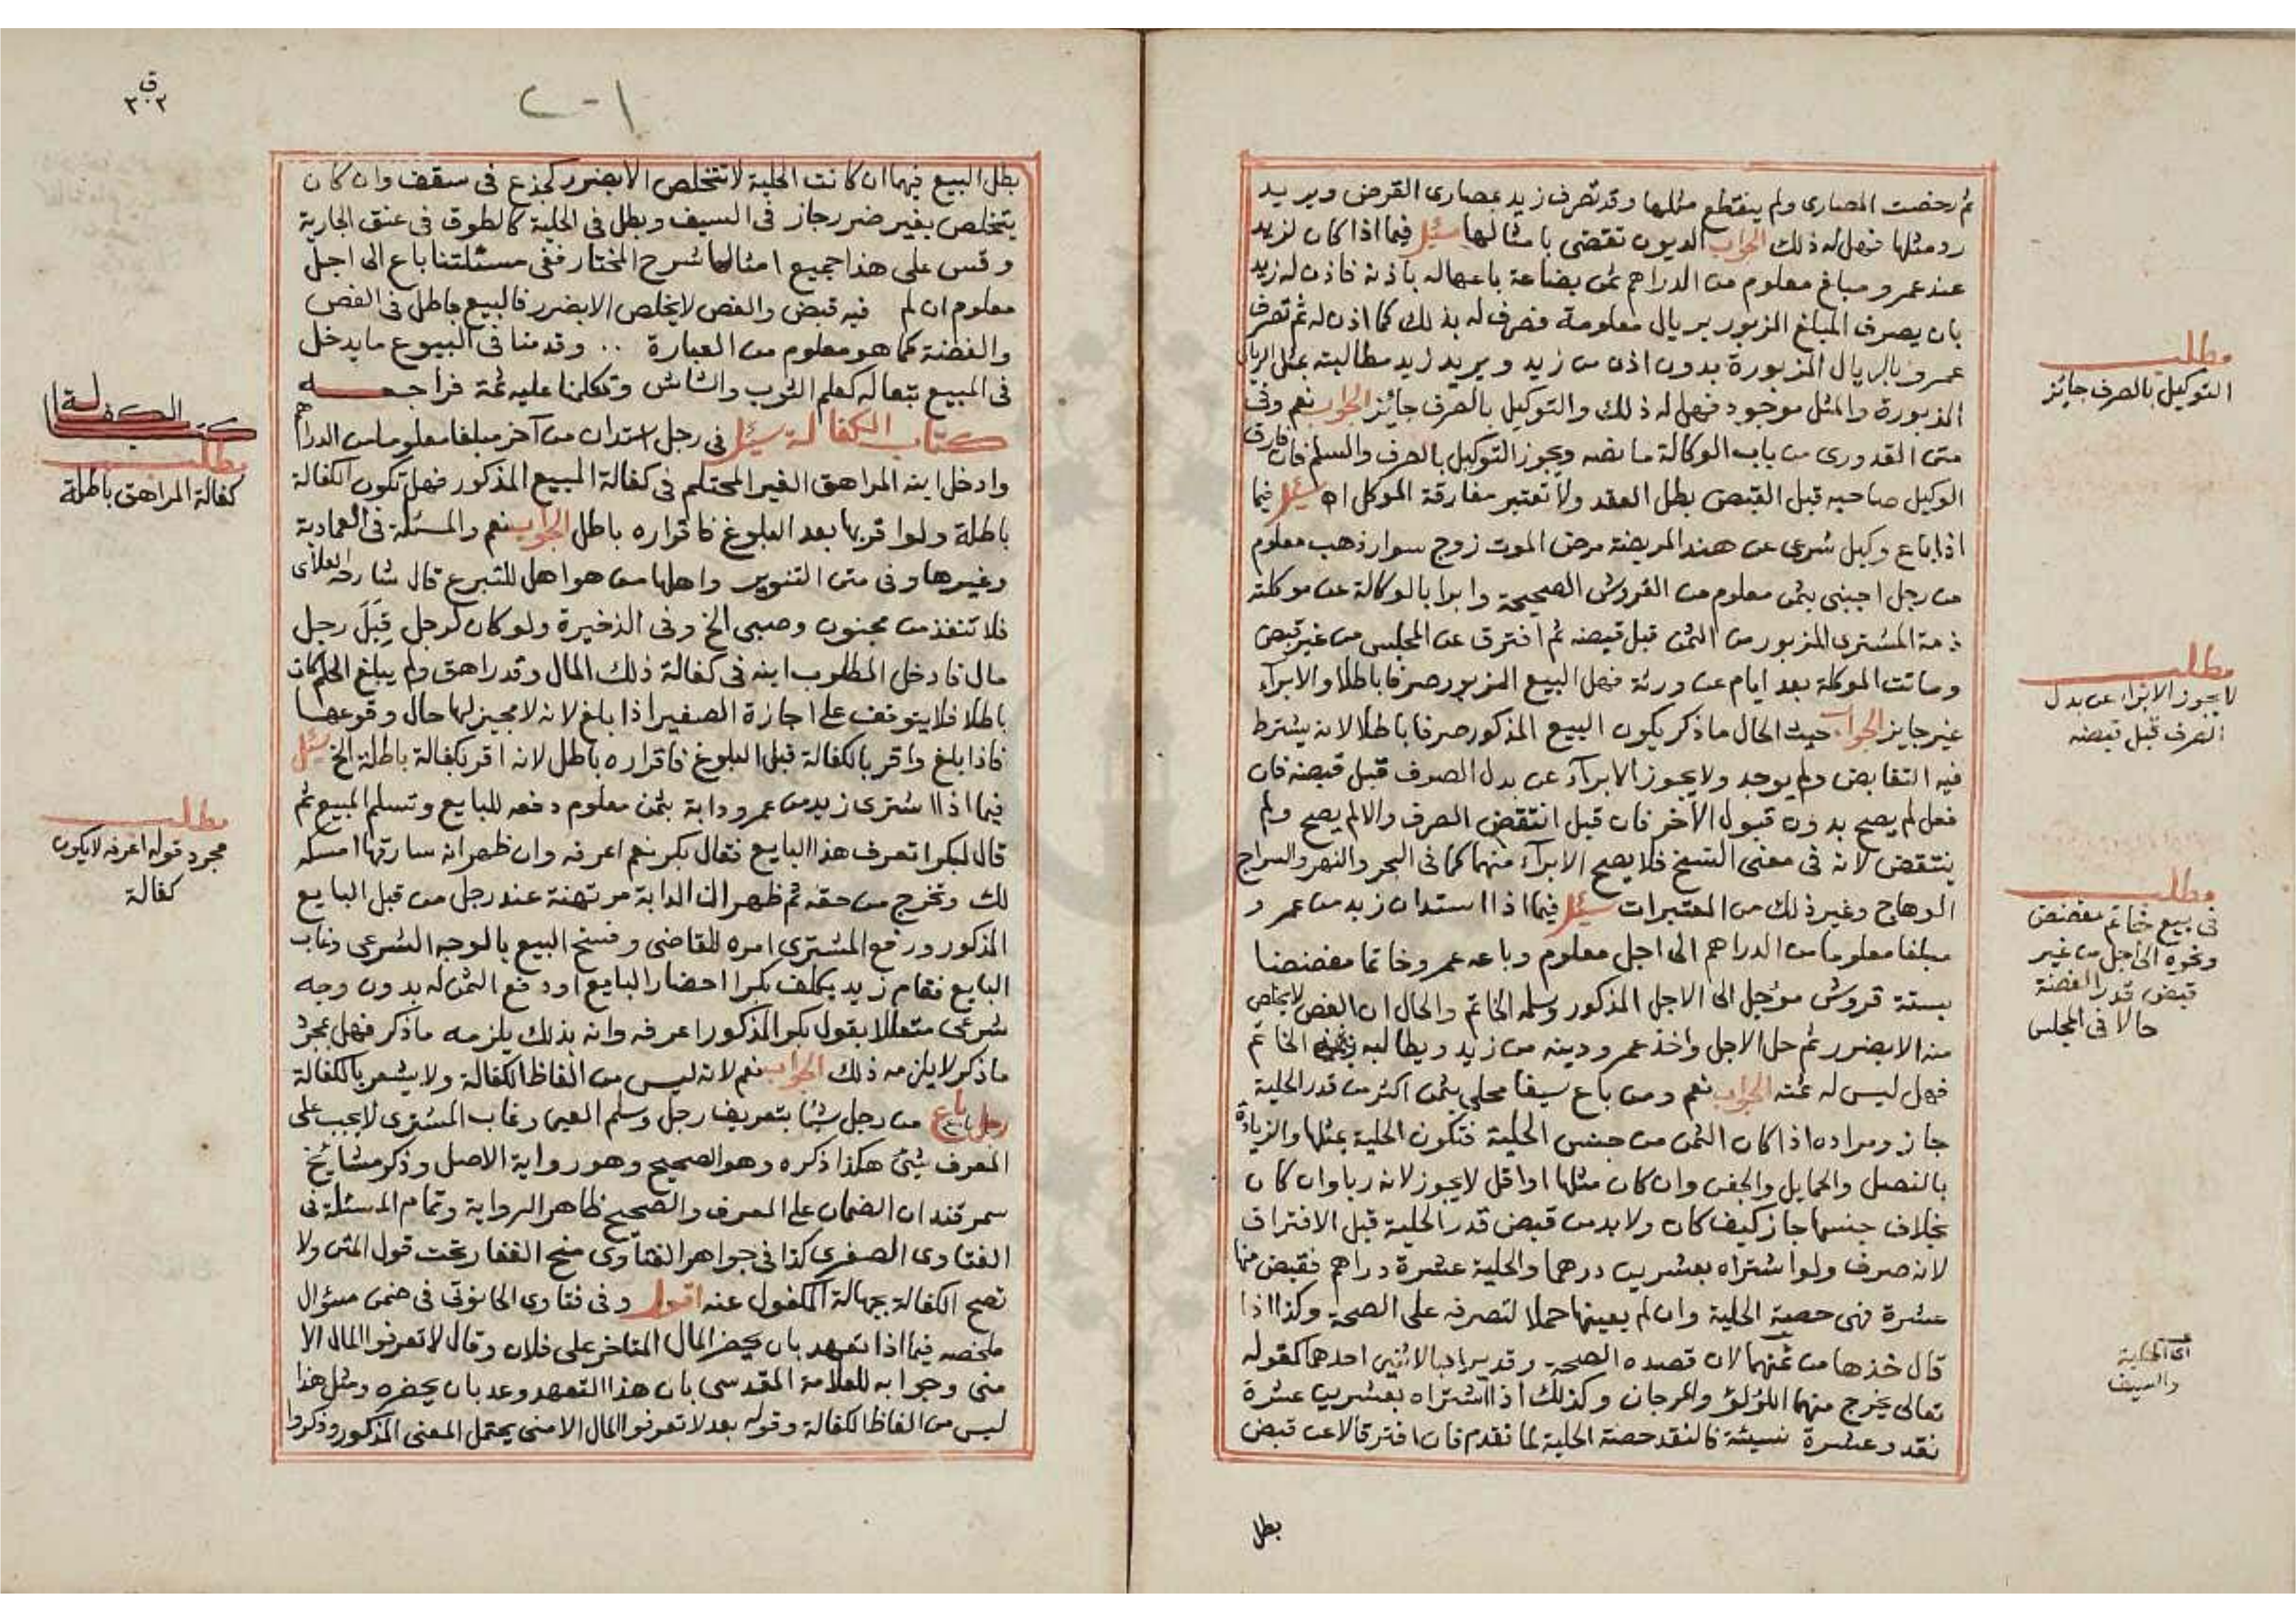 ثم رخصت المصارى ولم ينقطع مثلها وقد تصرف زيد بمصارى القرض ويريد
رد مثلها فهل له ذلك الجواب الديون تقضى بامثالها سئل فيما اذا كان لزيد
عند عمرو مبلغ معلوم من الدراهم ثمن بضاعة باعها له باذنه فاذن له زيد
بان يصرف المبلغ المزبور بريال معلومة فصرف له بذلك كما اذن له ثم تصرف
عمرو بالريال المزبورة بدون اذن من زيد ويريد زيد مطالبته بمثل الريال
المزبورة والمثل موجود فهل له ذلك والتوكيل بالصرف جائز الجواب نعم وفى
متن القدورى من باب الوكالة ما نصه ويجوز التوكيل بالصرف والسلم فان فارق
الوكيل صاحبه قبل القبض بطل العقد ولا تعتبر مفارقة الموكل اه سئل فيما
اذا باع وكيل شرعى عن هند المريضة مرض الموت زوج سوار ذهب معلوم
من رجل اجنبى بثمن معلوم من القروش الصحيحة وابرا بالوكالة عن موكلته
ذمة المشترى المزبور من الثمن قبل قبضه ثم افترق عن المجلس من غير قبض
وماتت الموكلة بعد ايام عن ورثة فهل البيع المزبور صرفا باطلا والابرآء
غير جايز الجواب حيث الحال ما ذكر يكون البيع المذكور صرفا باطلا لانه يشترط
فيه التقابض ولم يوجد ولا يجوز الابرآء عن بدل الصرف قبل قبضه فان
فعل لم يصح بدون قبول الآخر فان قبل انتقض الصرف والا لم يصح ولم
ينتقض لانه فى معنى الفسخ فلا يصح الابرآء منهما كما فى البحر والنهر والسراج
الوهاج وغير ذلك من المعتبرات سئل فيما اذا استدان زيد من عمر و
مبلغا معلوما من الدراهم الى اجل معلوم وباعه عمرو خاتما مفضضا
بستة قروش مؤجل الى الاجل المذكور وسلمه الخاتم والحال ان الفص لا يخلص
منه الا بضرر ثم حل الاجل واخذ عمرو دينه من زيد ويطالبه بثمن الخاتم
فهل ليس له ثمنه الجواب نعم ومن باع سيفا محلى بثمن اكثر من قدر الحلية
جاز ومراده اذا كان الثمن من جنس الحلية فتكون الحلية بمثلها والزيادة
بالنصل والحمايل والجفن وان كان مثلها او اقل لا يجوز لانه ربا وان كان
بخلاف جنسها جاز كيف كان ولا بد من قبض قدر الحلية قبل الافتراق
لانه صرف ولو اشتراه بعشرين درهما والحلية عشرة دراهم فقبض منها
عشرة فهى حصة الحلية وان لم يعينها حملا لتصرفه على الصحة وكذا اذا
قال خذها من ثمنهما لان قصده الصحة وقد يراد بالاثنين احدهما كقوله
تعالى يخرج منهما اللؤلؤ والمرجان وكذلك اذا اشتراه بعشرين عشرة
نقد وعشرة نسيئة فالنقد حصة الحلية لما تقدم فان افترقا لا عن قبض
بطل
مطلب
التوكيل بالصرف جائز
مطلب
لا يجوز الابراء عن بدل
الصرف قبل قبضه
مطلب
فى بيع خاتم مفضض
ونحوه الى اجل من غير
قبض قدر الفضة
حالا فى المجلس
اى الحلية
والسيف
بطل البيع فيهما ان كانت الحلية لا تتخلص الا بضرر كجذع فى سقف وان كان
يتخلص بغير ضرر جاز فى السيف وبطل فى الحلية كالطوق فى عنق الجارية
وقس على هذا جميع امثالها شرح المختار ففى مسئلتنا باع الى اجل
معلوم ان لم فيه قبض والفص لا يخلص الا بضرر فالبيع باطل فى الفص
والفضة كما هو معلوم من العبارة .. وقدمنا فى البيوع ما يدخل
فى المبيع تبعا له كعلم الثوب والشاش وتكلمنا عليه ثمة فراجعه
كتاب الكفالة سئل فى رجل استدان من آخر مبلغا معلوما من الدراهم
وادخل ابنه المراهق الغير المحتلم فى كفالة المبيع المذكور فهل تكون الكفالة
باطلة ولو اقر بها بعد البلوغ فاقراره باطل الجواب نعم والمسئلة فى العمادية
وغيرها وفى متن التنوير واهلها من هو اهل للتبرع قال شارحه العلائى
فلا تنفذ من مجنون وصبى الخ وفى الذخيرة ولو كان لرجل قبل رجل
مال فادخل المطلوب ابنه فى كفالة ذلك المال وقد راهق ولم يبلغ الحلم كان
باطلا فلا يتوقف على اجازة الصغير اذا بلغ لانه لا مجيز لها حال وقوعها
فاذا بلغ واقر بالكفالة قبل البلوغ فاقراره باطل لانه اقر بكفالة باطلة الخ سئل
فيما اذا اشترى زيد من عمرو دابة بثمن معلوم دفعه للبايع وتسلم المبيع ثم
قال لبكر اتعرف هذا البايع فقال بكر نعم اعرفه وان ظهر انه سارقها امسكه
لك وتخرج من حقه ثم ظهر ان الدابة مرتهنة عند رجل من قبل البايع
المذكور ورفع المشترى امره للقاضى وفسخ البيع بالوجه الشرعى وغاب
البايع فقام زيد يكلف بكرا احضار البايع او دفع الثمن له بدون وجه
شرعى متعللا بقول بكر المذكور اعرفه وانه بذلك يلزمه ما ذكر فهل بمجرد
ما ذكر لا يلزمه ذلك الجواب نعم لانه ليس من الفاظ الكفالة ولا يشعر بالكفالة
رجل باع من رجل شيئا بتعريف رجل وسلم العين وغاب المشترى لا يجب على
المعرف شئ هكذا ذكره وهو الصحيح وهو رواية الاصل وذكر مشايخ
سمرقند ان الضمان على المعرف والصحيح ظاهر الرواية وتمام المسئلة فى
الفتاوى الصغرى كذا فى جواهر الفتاوى منح الغفار تحت قول المتن ولا
تصح الكفالة بجهالة المكفول عنه اقول وفى فتاوى الحانوتى فى ضمن سؤال
ملخصه فيما اذا تعهد بان يحضر المال المتاخر على فلان وقال لا تعرفوا المال الا
منى وجوابه للعلامة المقدسى بان هذا التعهد وعد بان يحضره ومثل هذا
ليس من الفاظ الكفالة وقوله بعد لا تعرفوا المال الا منى يحتمل المعنى المذكور وذكروا
كتاب الكفالة
مطلب
كفالة المراهق باطلة
مطلب
مجرد قوله اعرفه لا يكون
كفالة